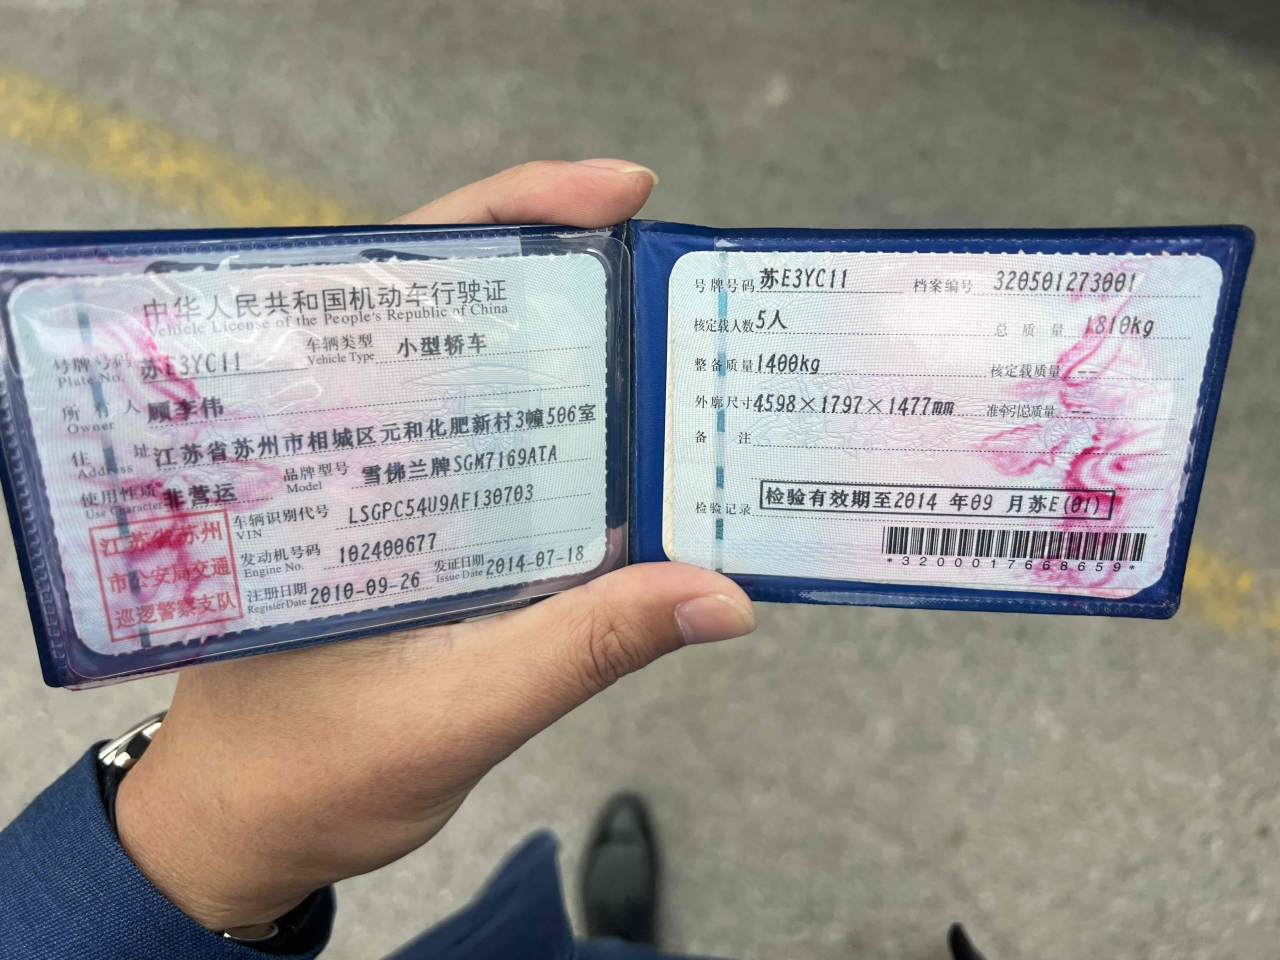 中华人民共和国机动车行驶证
Vehicle License of the People's Republic of China
号牌号码 苏E3YC11 车辆类型 小型轿车
Plate No. Vehicle Type
所有人 顾李伟
Owner
住址 江苏省苏州市相城区元和化肥新村3幢506室
Address
使用性质 非营运 品牌型号 雪佛兰牌SGM7169ATA
Use Character Model
江苏省苏州市公安局交通巡逻警察支队
车辆识别代号 LSGPC54U9AF130703
VIN
发动机号码 102400677
Engine No.
注册日期 2010-09-26 发证日期 2014-07-18
Register Date Issue Date
号牌号码 苏E3YC11 档案编号 320501273001
核定载人数 5人 总质量 1810kg
整备质量 1400kg 核定载质量 --
外廓尺寸 4598×1797×1477mm 准牵引总质量 --
备注
检验记录 检验有效期至2014 年09 月苏E(01)
*3200017668659*